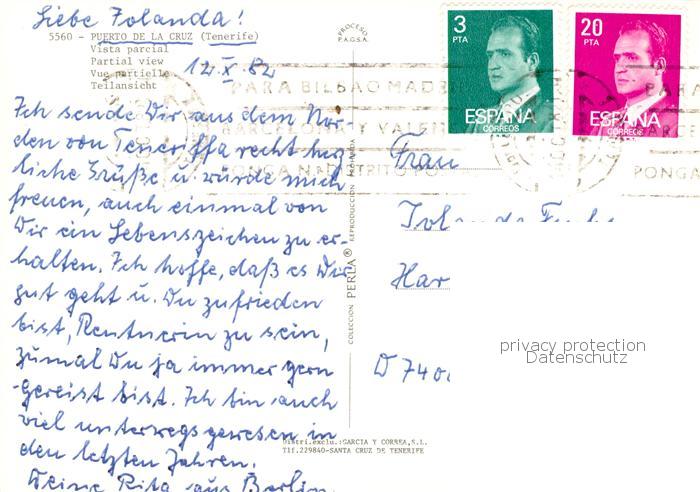 Liebe Jolanda!
5560 - PUERTO DE LA CRUZ (Tenerife)
Vista parcial
Partial view
Vue partielle
Teilansicht
12.X.82
PROCESO
P.A.G.S.A.
3
PTA
ESPAÑA
CORREOS
20
PTA
ESPAÑA
CORREOS
PARA BILBAO MADRI
BARCELONA Y VALEN
PONGA N DISTRITO PO
PONGA
Ich sende Dir aus dem Nor-
den von Teneriffa recht herz-
liche Grüße u. würde mich
freuen, auch einmal von
Dir ein Lebenszeichen zu er-
halten. Ich hoffe, daß es Dir
gut geht u. Du zufrieden
bist, Rentnerin zu sein,
zumal Du ja immer gern
gereist bist. Ich bin auch
viel unterwegs gewesen in
den letzten Jahren.
Deine Rita aus Berlin.
COLECCION PERLA® REPRODUCCION PROHIBIDA
Frau
Jolanda
Har
D 740
privacy protection
Datenschutz
Distri.exclu.:GARCIA Y CORREA,S.L.
Tlf.229840-SANTA CRUZ DE TENERIFE